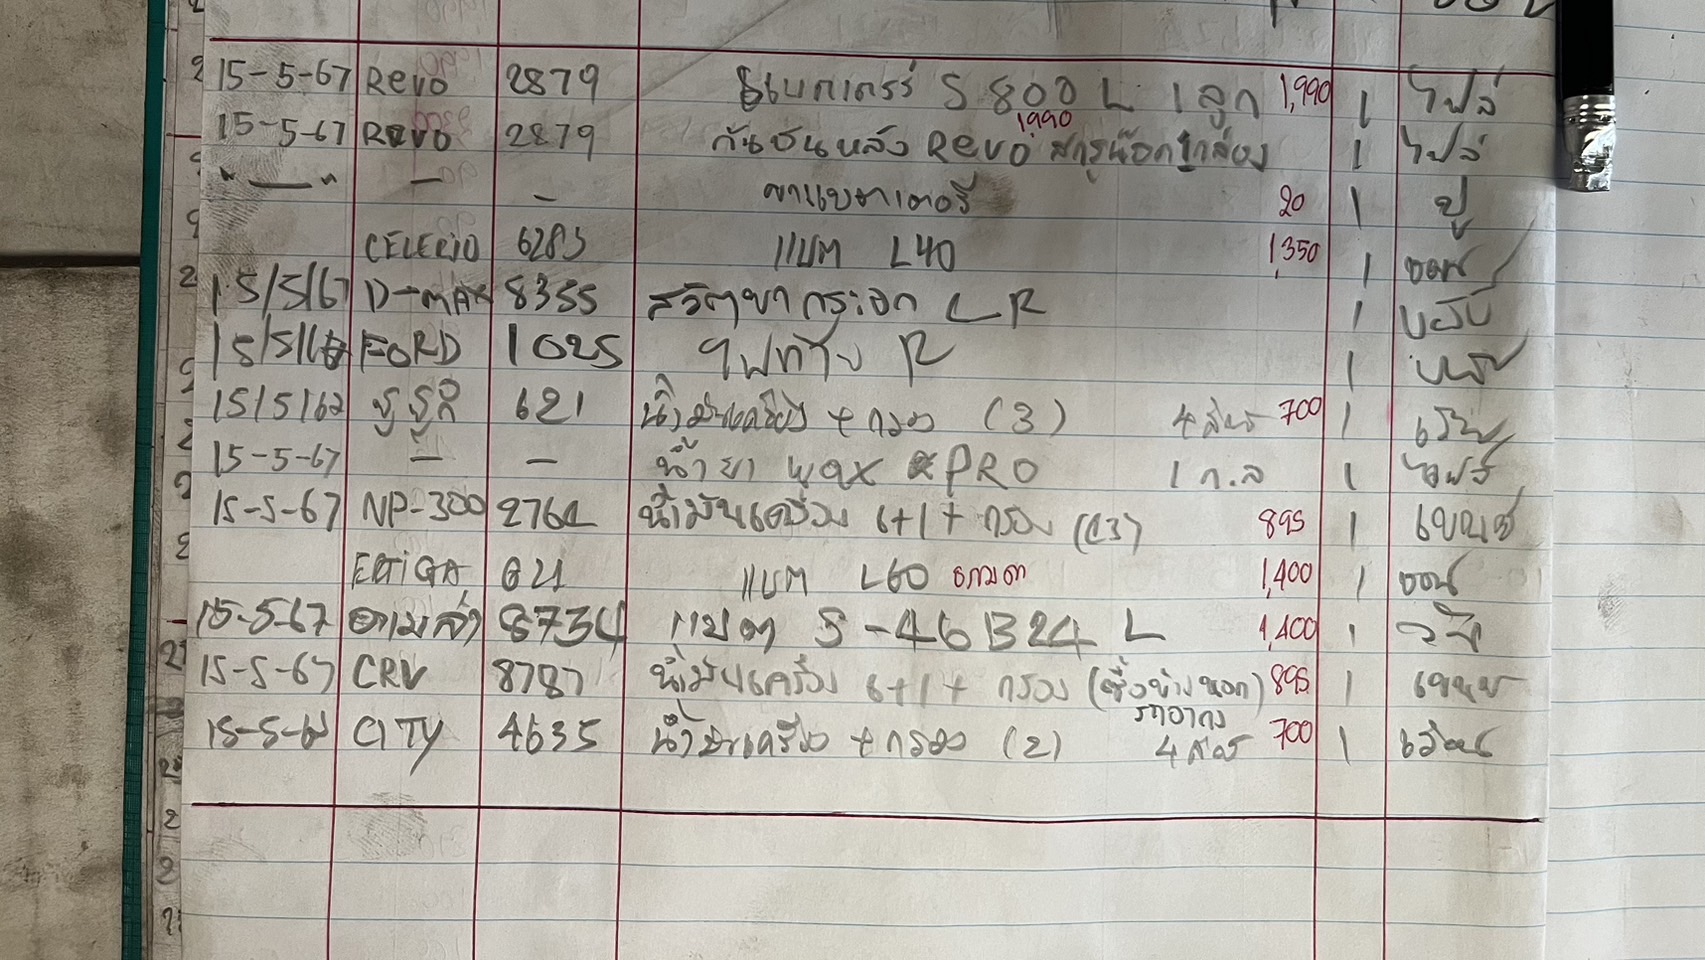 15-5-67 Revo 2879 แบตเตอรี่ S 800 L 1 ลูก 1,990 1 โฟล์
1,990
15-5-67 Revo 2879 กันชนหลัง Revo สกรูน๊อต 1 กล่อง 1 โฟล์
"—" — — ขาแบตเตอรี่ 20 1 ปู
CELERIO 6283 แบต L40 1,350 1
15/5/67 D-MAX 8355 สวิตขากระจก L R 1
15/5/67 FORD 1025 ไฟท้าย R 1
15/5/67 ซูซูกิ 621 น้ำมันเครื่อง + กรอง (3) 4 ลิตร 700 1
15-5-67 — — น้ำยา wax PRO 1 ก.ล 1
15-5-67 NP-300 2761 น้ำมันเครื่อง 6+1+ กรอง 895 1
ERTIGA 621 แบต L60 1,400 1
15-5-67 8734 แบต S-46B24 L 1,400 1
15-5-67 CRV 8787 น้ำมันเครื่อง 6+1+ กรอง (ซื้อข้างนอก) 895 1
15-5-67 CITY 4635 น้ำมันเครื่อง + กรอง (2) 4 ลิตร 700 1